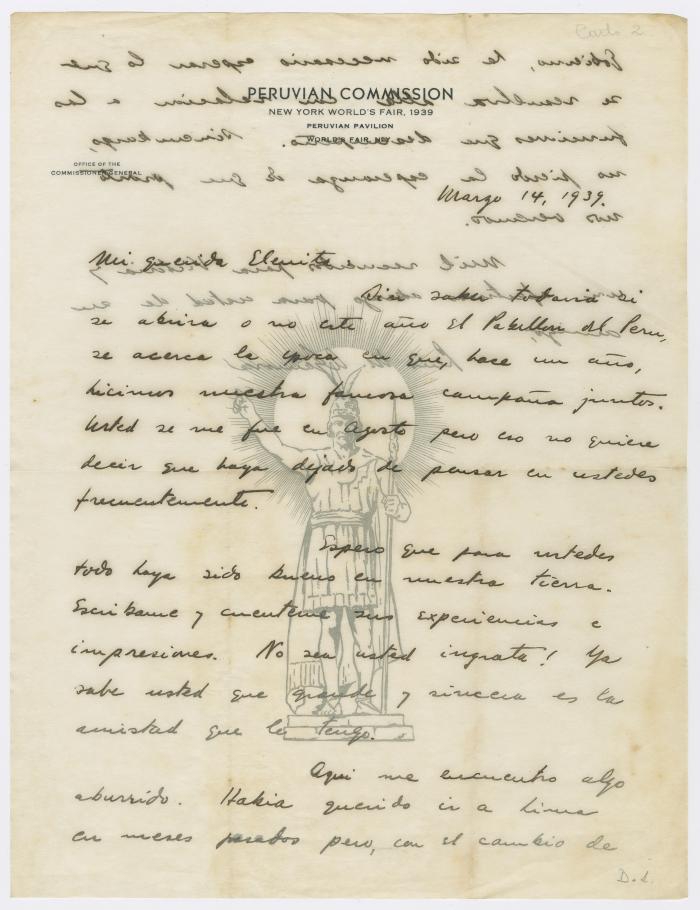 Carlo 2
PERUVIAN COMMISSION
NEW YORK WORLD'S FAIR, 1939
PERUVIAN PAVILION
WORLD'S FAIR, N.Y.
OFFICE OF THE
COMMISSIONER GENERAL
Marzo 14, 1939.
Mi querida Elenita
Sin saber todavia si
se abrira o no este año el Pabellon del Peru,
se acerca la epoca en que, hace un año,
hicimos nuestra famosa campaña juntos.
Usted se me fue en Agosto pero eso no quiere
decir que haya dejado de pensar en ustedes
frecuentemente.
Espero que para ustedes
todo haya sido bueno en nuestra tierra.
Escribame y cuenteme sus experiencias e
impresiones. No sea usted ingrata! Ya
sabe usted que grande y sincera es la
amistad que le tengo.
Aqui me encuentro algo
aburrido. Habia querido ir a Lima
en meses pasados pero, con el cambio de
D.S.